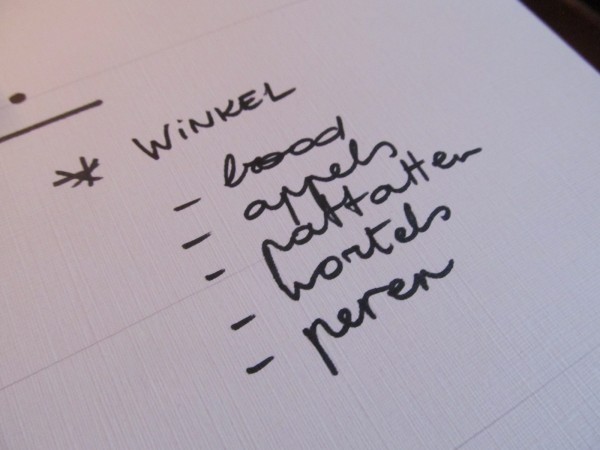 * WiNKEL
- brood
- appels
- pattatten
- wortels
- peren